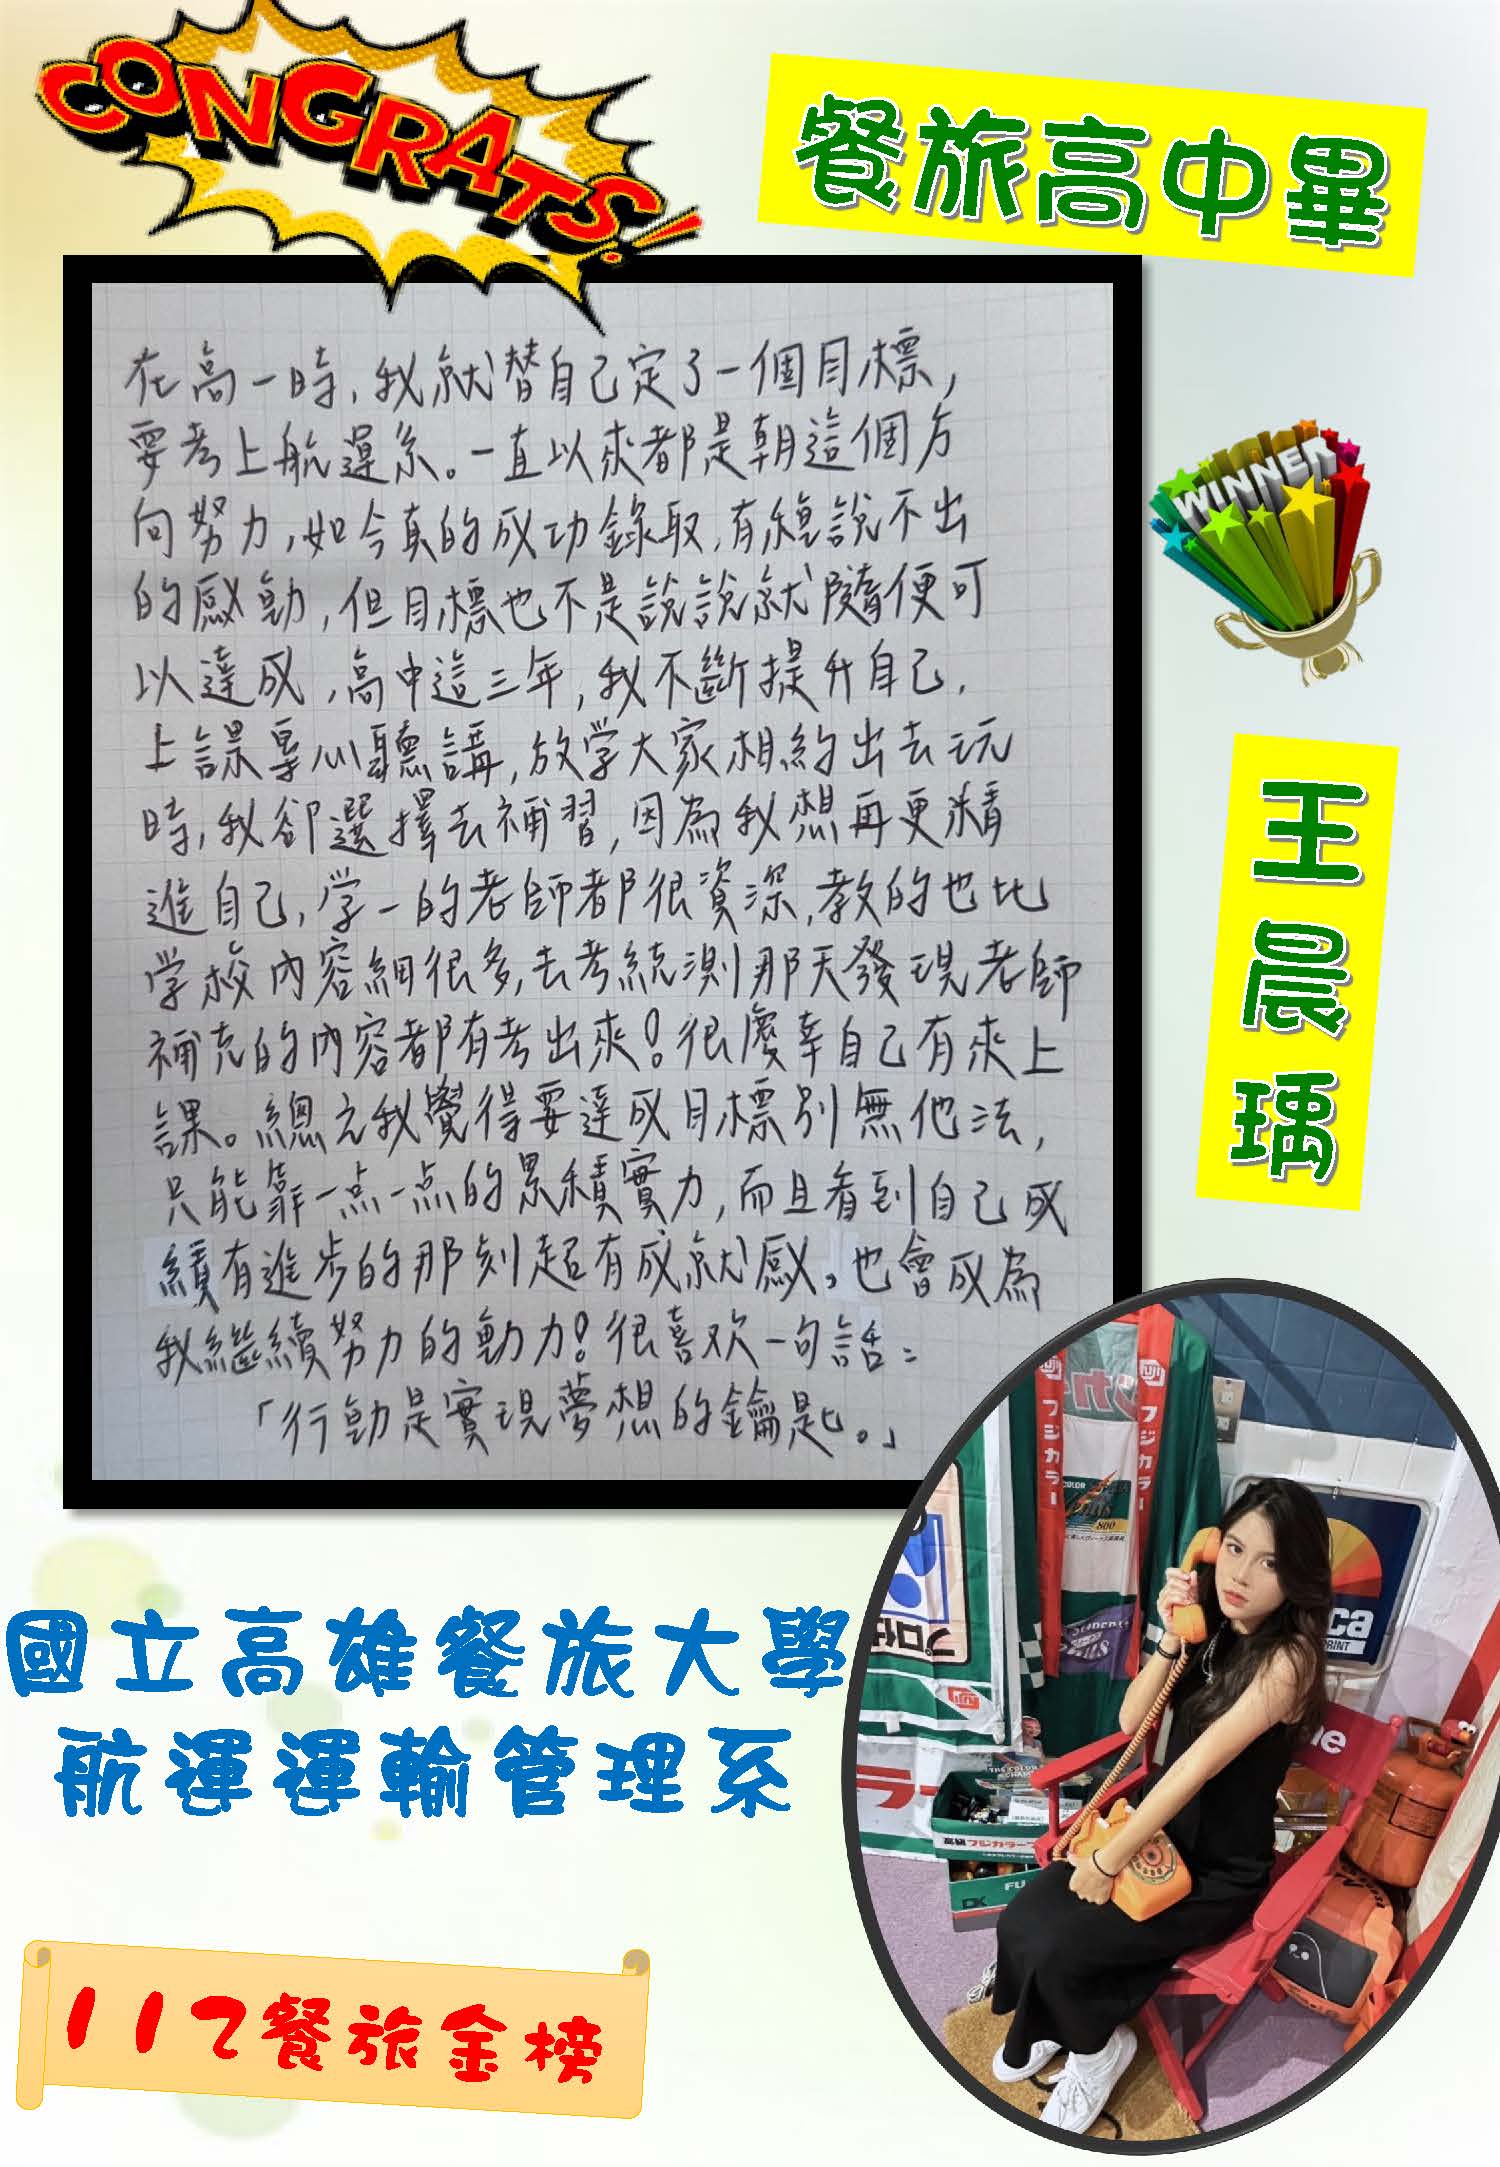 CONGRATS!
餐旅高中畢
在高一時,我就替自己定了一個目標,
要考上航運系。一直以來都是朝這個方
向努力,如今真的成功錄取,有種說不出
的感動,但目標也不是說說就隨便可
以達成,高中這三年,我不斷提升自己,
上課專心聽講,放学大家相約出去玩
時,我卻選擇去補習,因為我想再更精
進自己,学一的老師都很資深,教的也比
学校內容細很多,去考統測那天發現老師
補充的內容都有考出來!很慶幸自己有來上
課。總之我覺得要達成目標別無他法,
只能靠一点一点的累積實力,而且看到自己成
績有進步的那刻超有成就感,也會成為
我繼續努力的動力!很喜欢一句話:
「行動是實現夢想的鑰匙。」
WINNER
王晨瑀
國立高雄餐旅大學
航運運輸管理系
112餐旅金榜
フジカラー
フジカラー
COLOR
800
PRINT
DK